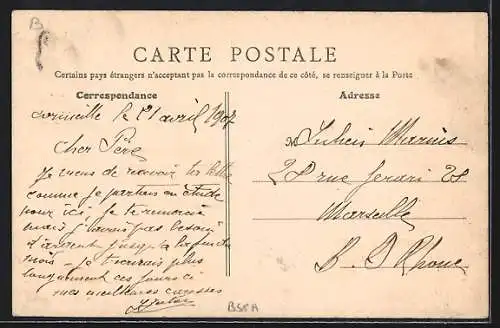 B
CARTE POSTALE
Certains pays étrangers n'acceptant pas la correspondance de ce côté, se renseigner à la Poste
Correspondance
Adresse
le 21 avril 1907
Cher Père
Je viens de recevoir ta lettre
comme je partais en étude
pour ici, je te remercie
mais j'avais pas besoin
d'argent jusqu'à la fin du
mois - je t'écrirai plus
longuement ces jours ci
mes meilleures caresses
28 rue 28
Marseille
B. D Rhone
BSPA